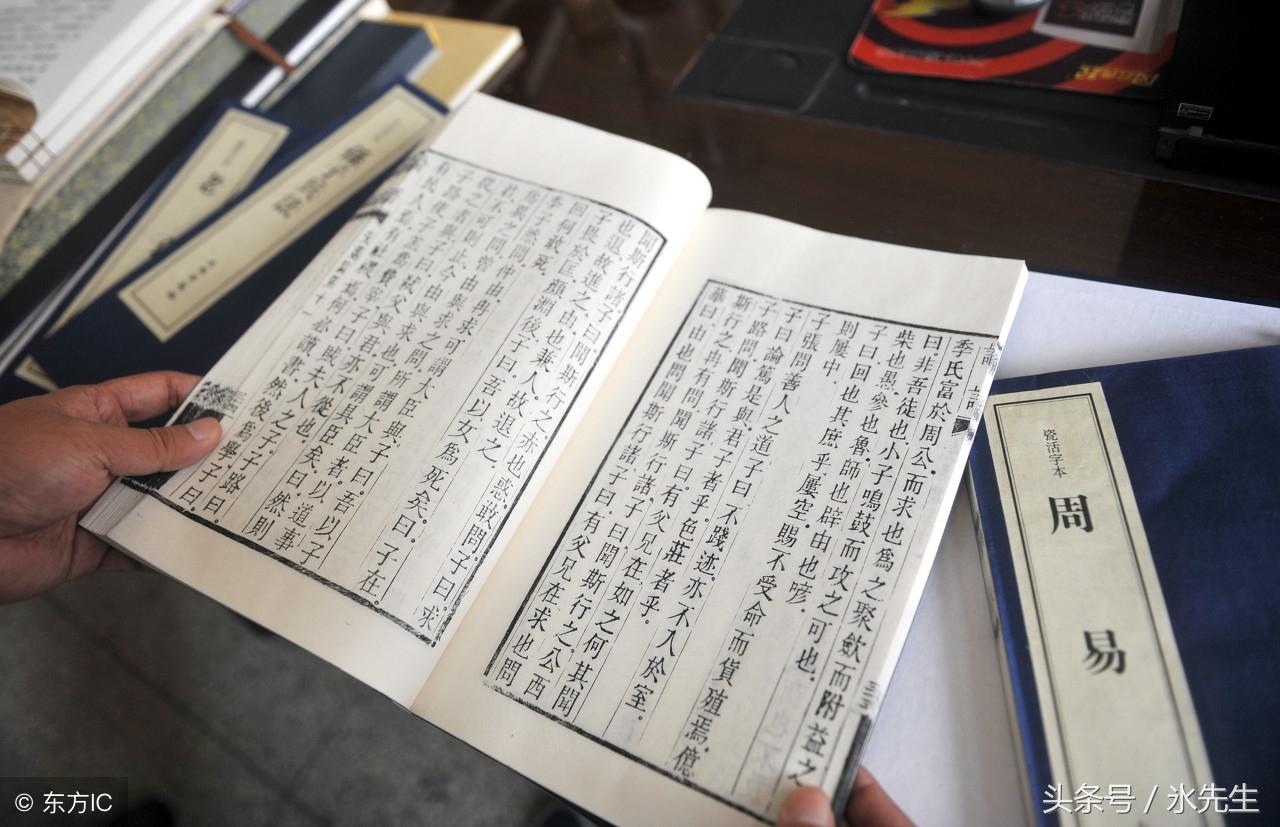 季氏富於周公。而求也為之聚斂而附益之
曰非吾徒也小子鳴鼓而攻之可也。
柴也愚。參也魯。師也辟。由也喭。
子曰回也其庶乎屢空。賜不受命而貨殖焉。億
則屢中。
子張問善人之道子曰不踐迹。亦不入於室。
子曰。論篤是與君子者乎。色莊者乎。
子路問聞斯行諸。子曰。有父兄在如之何其聞
斯行之。冉有問聞斯行諸。子曰。聞斯行之。公西
華曰由也問聞斯行諸。子曰。有父兄在求也問
聞斯行諸。子曰。聞斯行之。赤也惑。敢問。子曰。求
也退。故進之。由也兼人。故退之。
子畏於匡。顏淵後。子曰。吾以女為死矣。曰。子在。
回何敢死。
季子然問。仲由冉求可謂大臣與。子曰。吾以子
為異之問。曾由與求之問。所謂大臣者。以道事
君。不可則止。今由與求也。可謂具臣矣。曰。然則
從之者與。子曰。弒父與君。亦不從也。
子路使子羔為費宰。子曰。賊夫人之子。子路曰。
有民人焉。有社稷焉。何必讀書。然後為學。子曰。
瓷活字本
周易
© 东方IC
头条号 / 氷先生